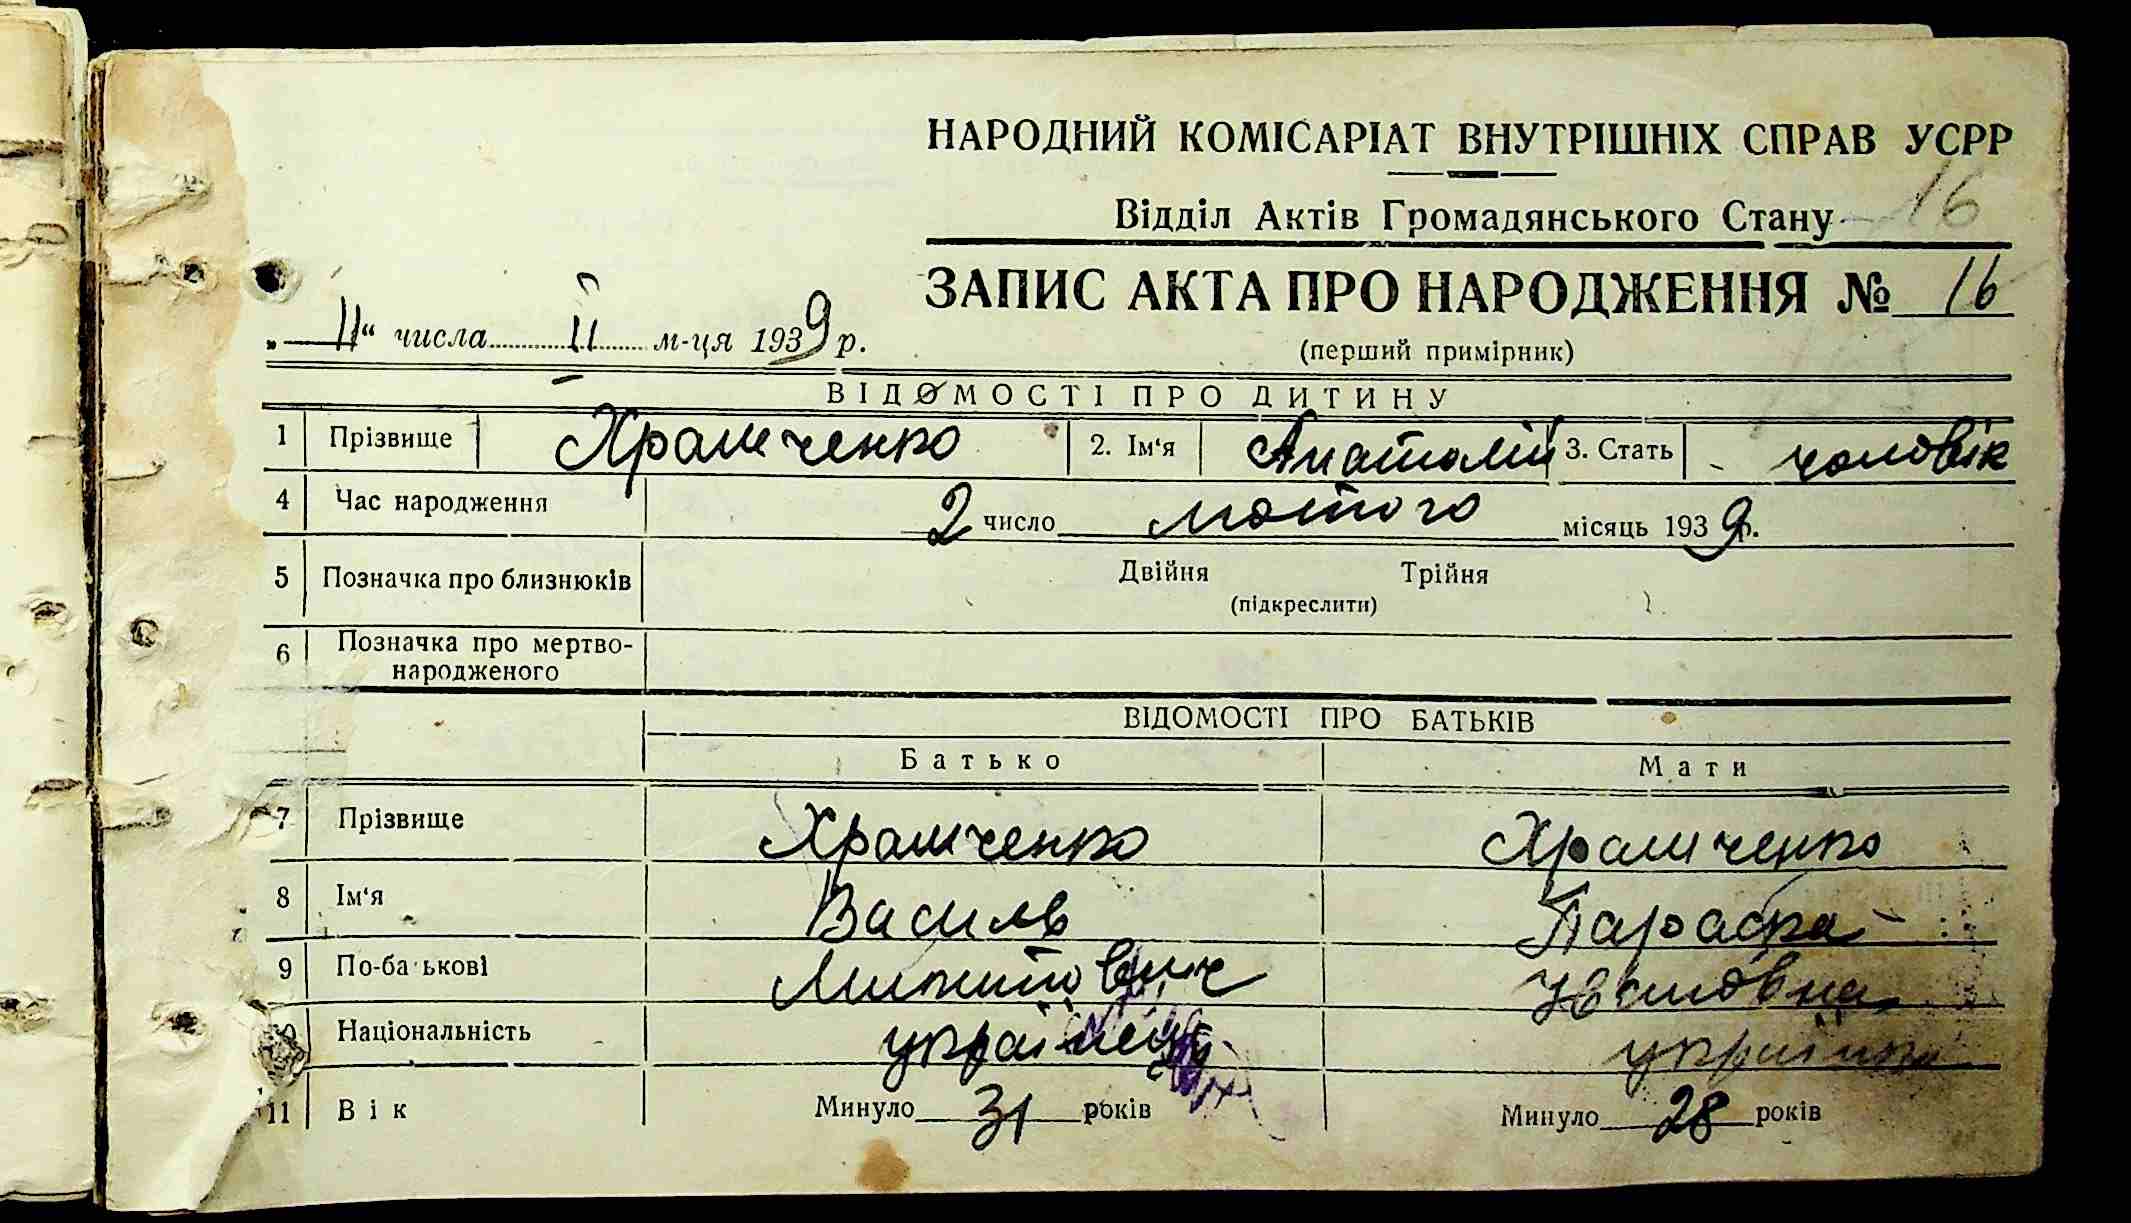 НАРОДНИЙ КОМІСАРІАТ ВНУТРІШНІХ СПРАВ УСРР
Відділ Актів Громадянського Стану 16
ЗАПИС АКТА ПРО НАРОДЖЕННЯ № 16
„ 11“ числа II м-ця 1939 р.
(перший примірник)
ВІДОМОСТІ ПРО ДИТИНУ
1 Прізвище Храмченко 2. Ім‘я Анатолій 3. Стать чоловік
4 Час народження 2 число лютого місяць 1939 р.
5 Позначка про близнюків Двійня Трійня
(підкреслити)
6 Позначка про мертво-
народженого
ВІДОМОСТІ ПРО БАТЬКІВ
Батько Мати
7 Прізвище Храмченко Храмченко
8 Ім‘я Василь Параска
9 По-батькові Микитович
10 Національність українець українка
11 Вік Минуло 31 років Минуло 28 років